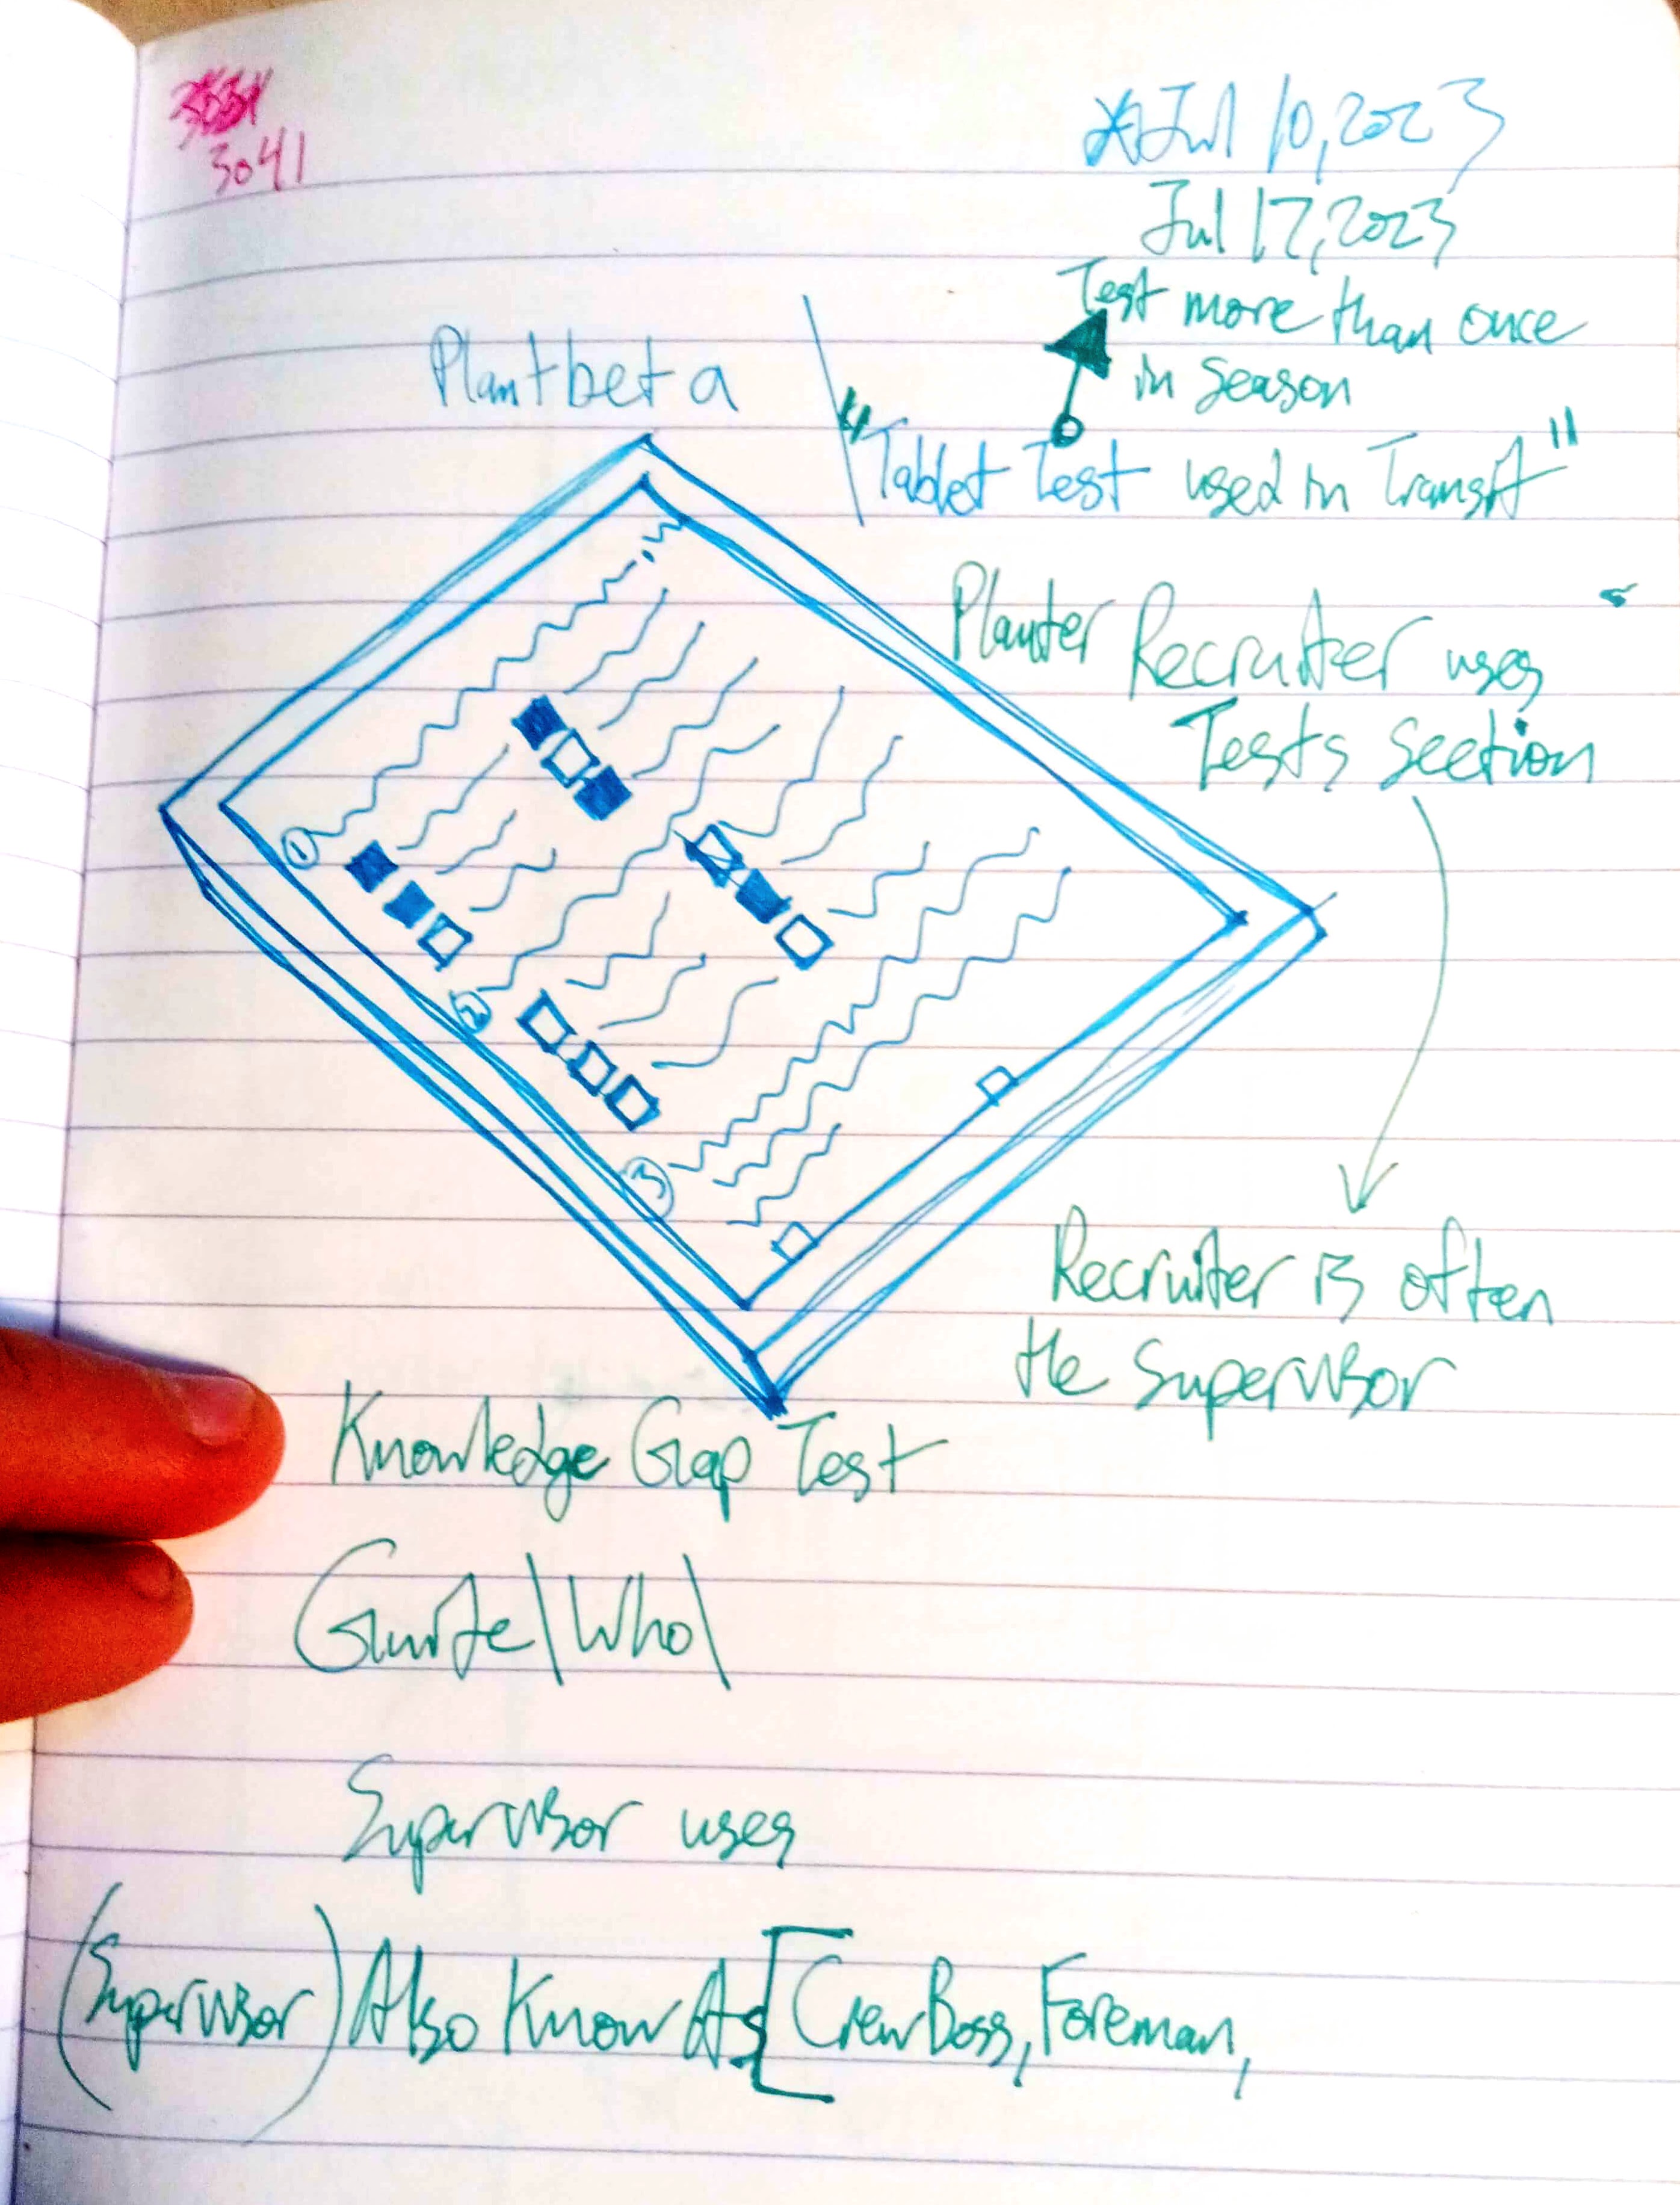 3041
Jul 10, 2023
Jul 17, 2023
Test more than once
in season
Plantbeta
"Tablet Test used in Transit"
Planter Recruiter uses
Tests section
1
2
3
Recruiter is often
the Supervisor
Knowledge Gap Test
\Who\
Supervisor uses
(Supervisor) Also Know As [Crew Boss, Foreman,